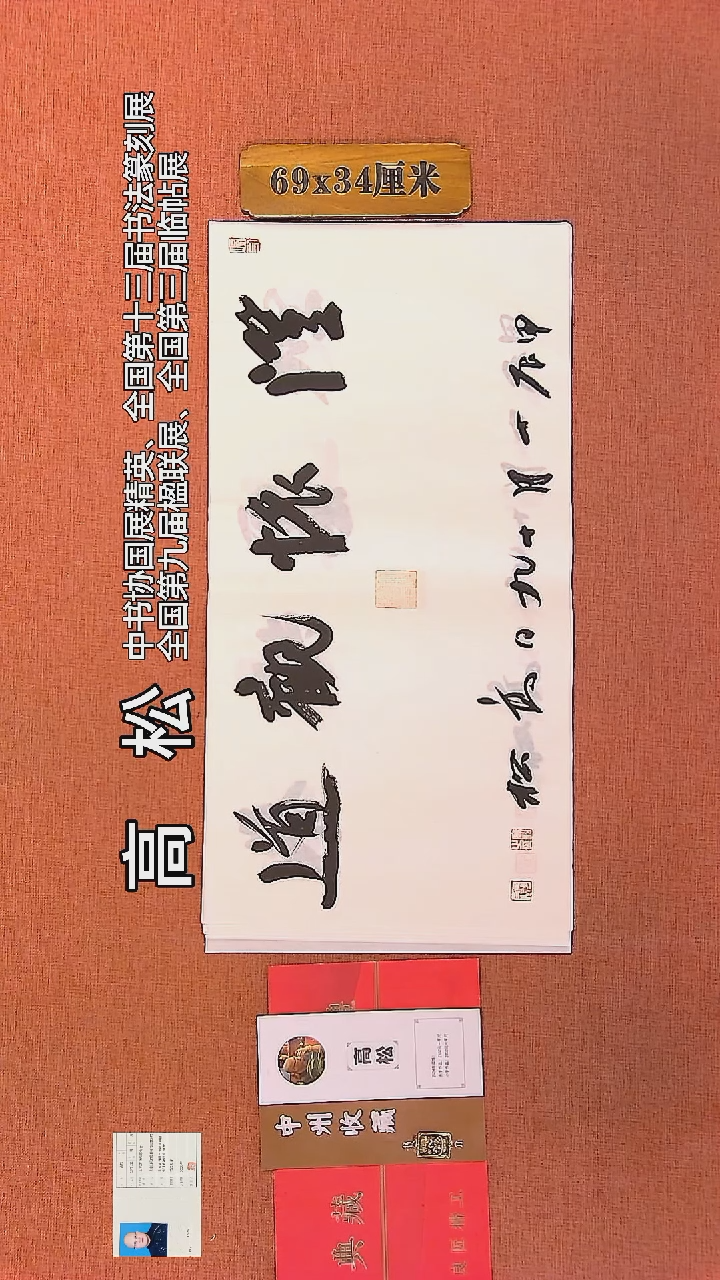 69x34厘米
高松
中书协国展精英、全国第十三届书法篆刻展
全国第九届楹联展、全国第三届临帖展
澄怀觀道
月十九日高松
高松
中州收藏
典藏